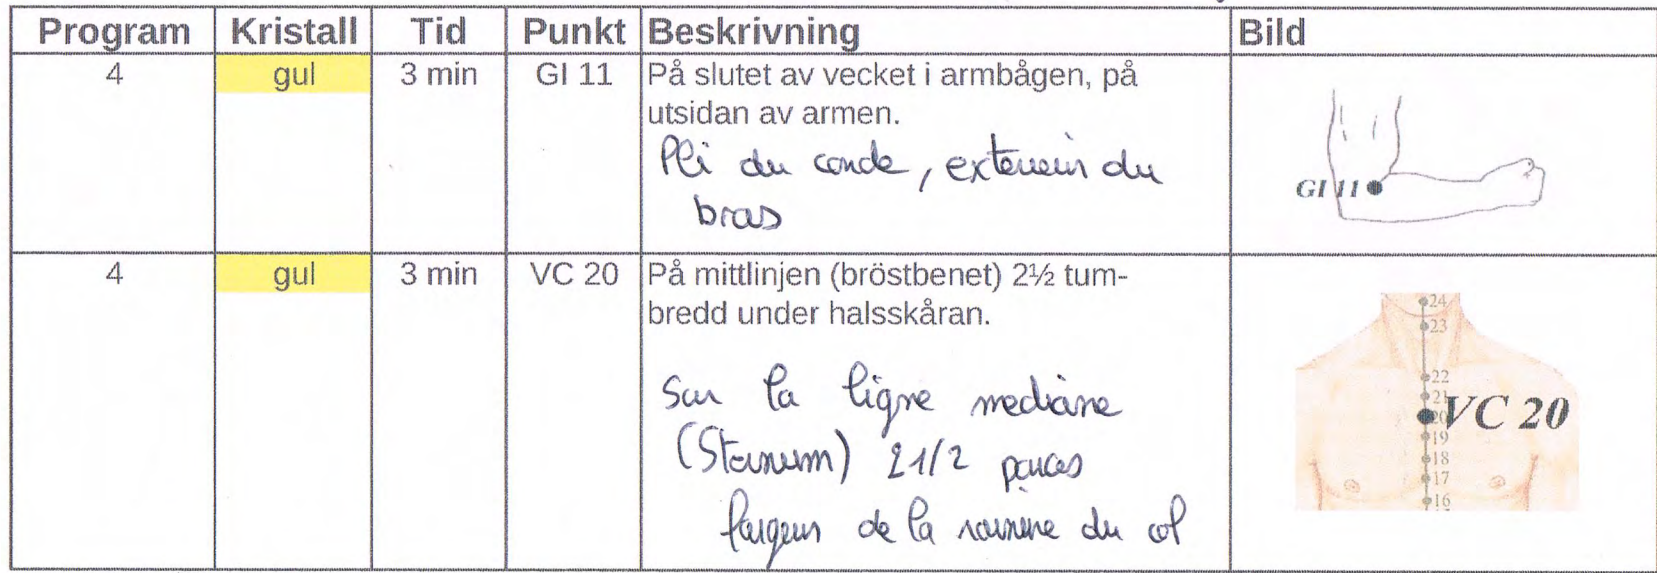 Program Kristall Tid Punkt Beskrivning Bild
4 gul 3 min GI 11 På slutet av vecket i armbågen, på
utsidan av armen.
Pli du coude, exterieur du
bras
GI 11
4 gul 3 min VC 20 På mittlinjen (bröstbenet) 2½ tum-
bredd under halsskåran.
Sur la ligne mediane
(Sternum) 2 1/2 pouces
largeur de la rainure du col
24
23
22
21
20 VC 20
19
18
17
16